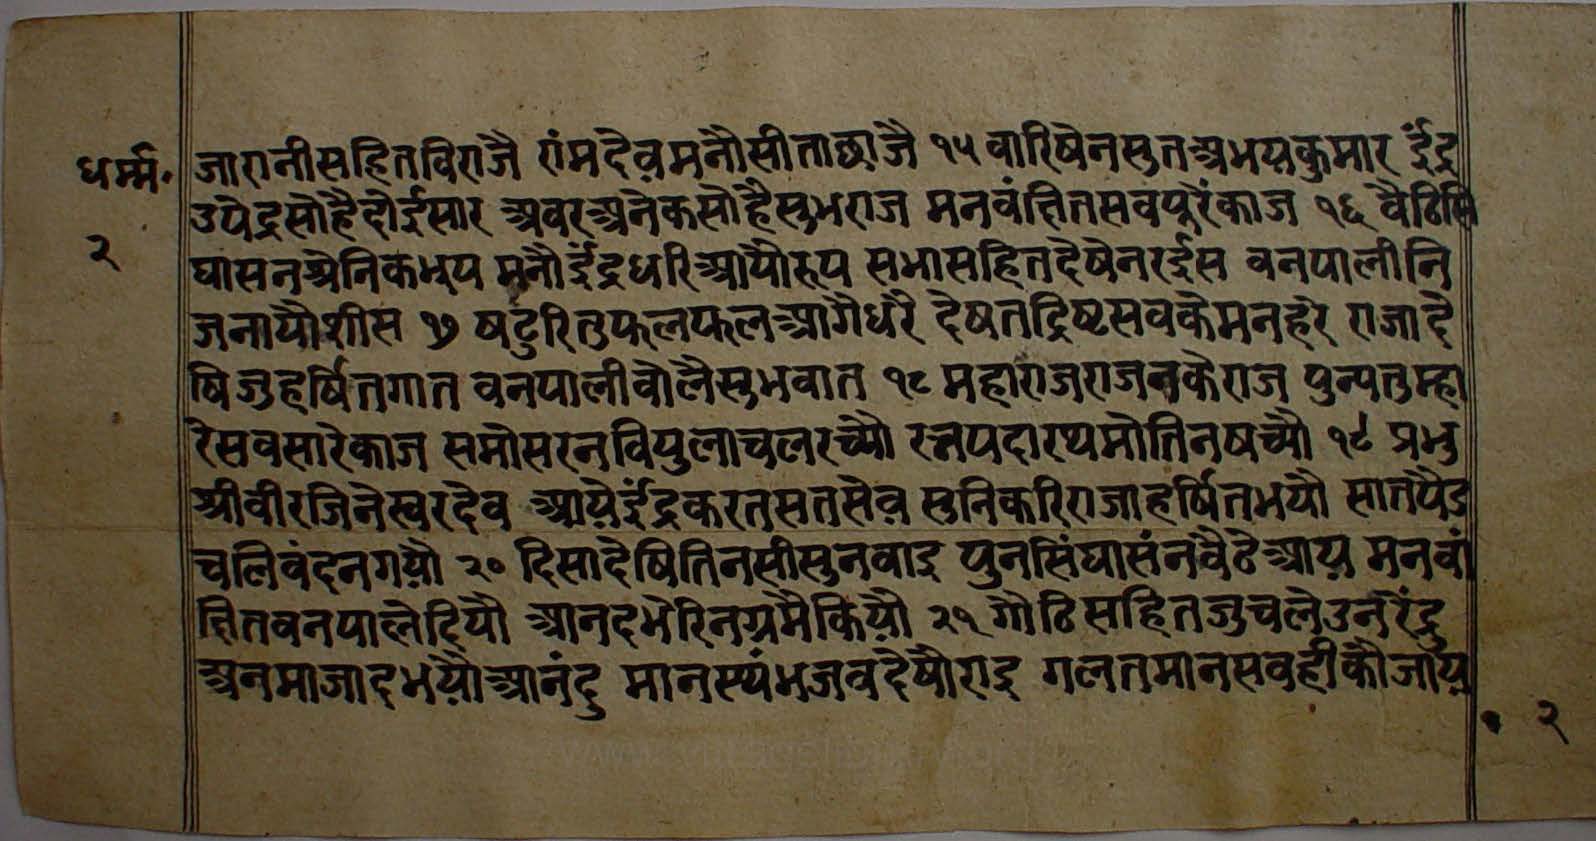 धर्म्म॰
२
जारानीसहितविराजै रांमदेवमनौसीताछाजै १५ वारिषेनसुतअभयकुमार ईंद्र
उपेंद्रसोहैदोईसार अवरअनेकसोहैसुभराज मनवंछितसवपुरेंकाज १६ वैठिसिं
घासनश्रेनिकभुप मनौईंद्रधरिआयौरुप सभासहितदेषेनरईस वनपालीनि
जनायौशीस १७ षटुरितुफलफलआगैधरै देषतद्रिष्टसवकेमनहरे राजादे
षिजुहर्षितगात वनपालीवोलैसुभवात १८ महाराजराजनकेराज पुन्यतुम्हा
रेसवसारेकाज समोसरनविपुलाचलरच्यौ रत्नपदारथमोतिनषच्यौ १९ प्रभु
श्रीवीरजिनेस्वरदेव आयेईंद्रकरतसतसेव सुनिकरिराजाहर्षितभयौ सातपैड
चलिवंदनगयौ २० दिसादेषितिनसीसुनवाइ पुनसिंघासंनवैठेआय मनवां
छितवनपालेदियौ आनदभेरिनग्रमैकियौ २१ गौठिसहितजुचलेउनरेंदु
श्रेनमाजादभयौआनंदु मानस्थंभजवदेषौराइ गलतमानसवहीकौजाय
२